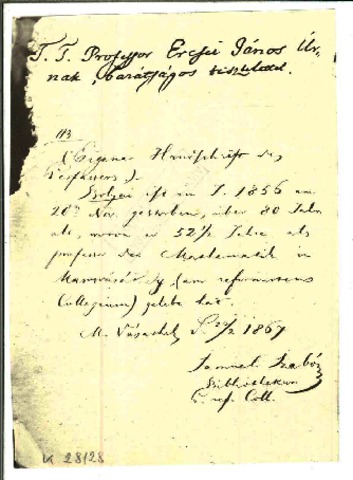 T. T. Professor Ercsei János Úr-
nak, barátságos tisztelettel.
113
(Eigene Handschrift des
Verfassers).
Bolyai ist im J. 1856 am
20ten Nov. gestorben, über 80 Jahr
alt, wovon er 52½ Jahre als
professor der Mathematik in
(am reformirten
Collegium) gelebt hat.
M. Vásárhely 1867
Samuel Szabó
Bibliothekar
ref. Coll.
K 28128